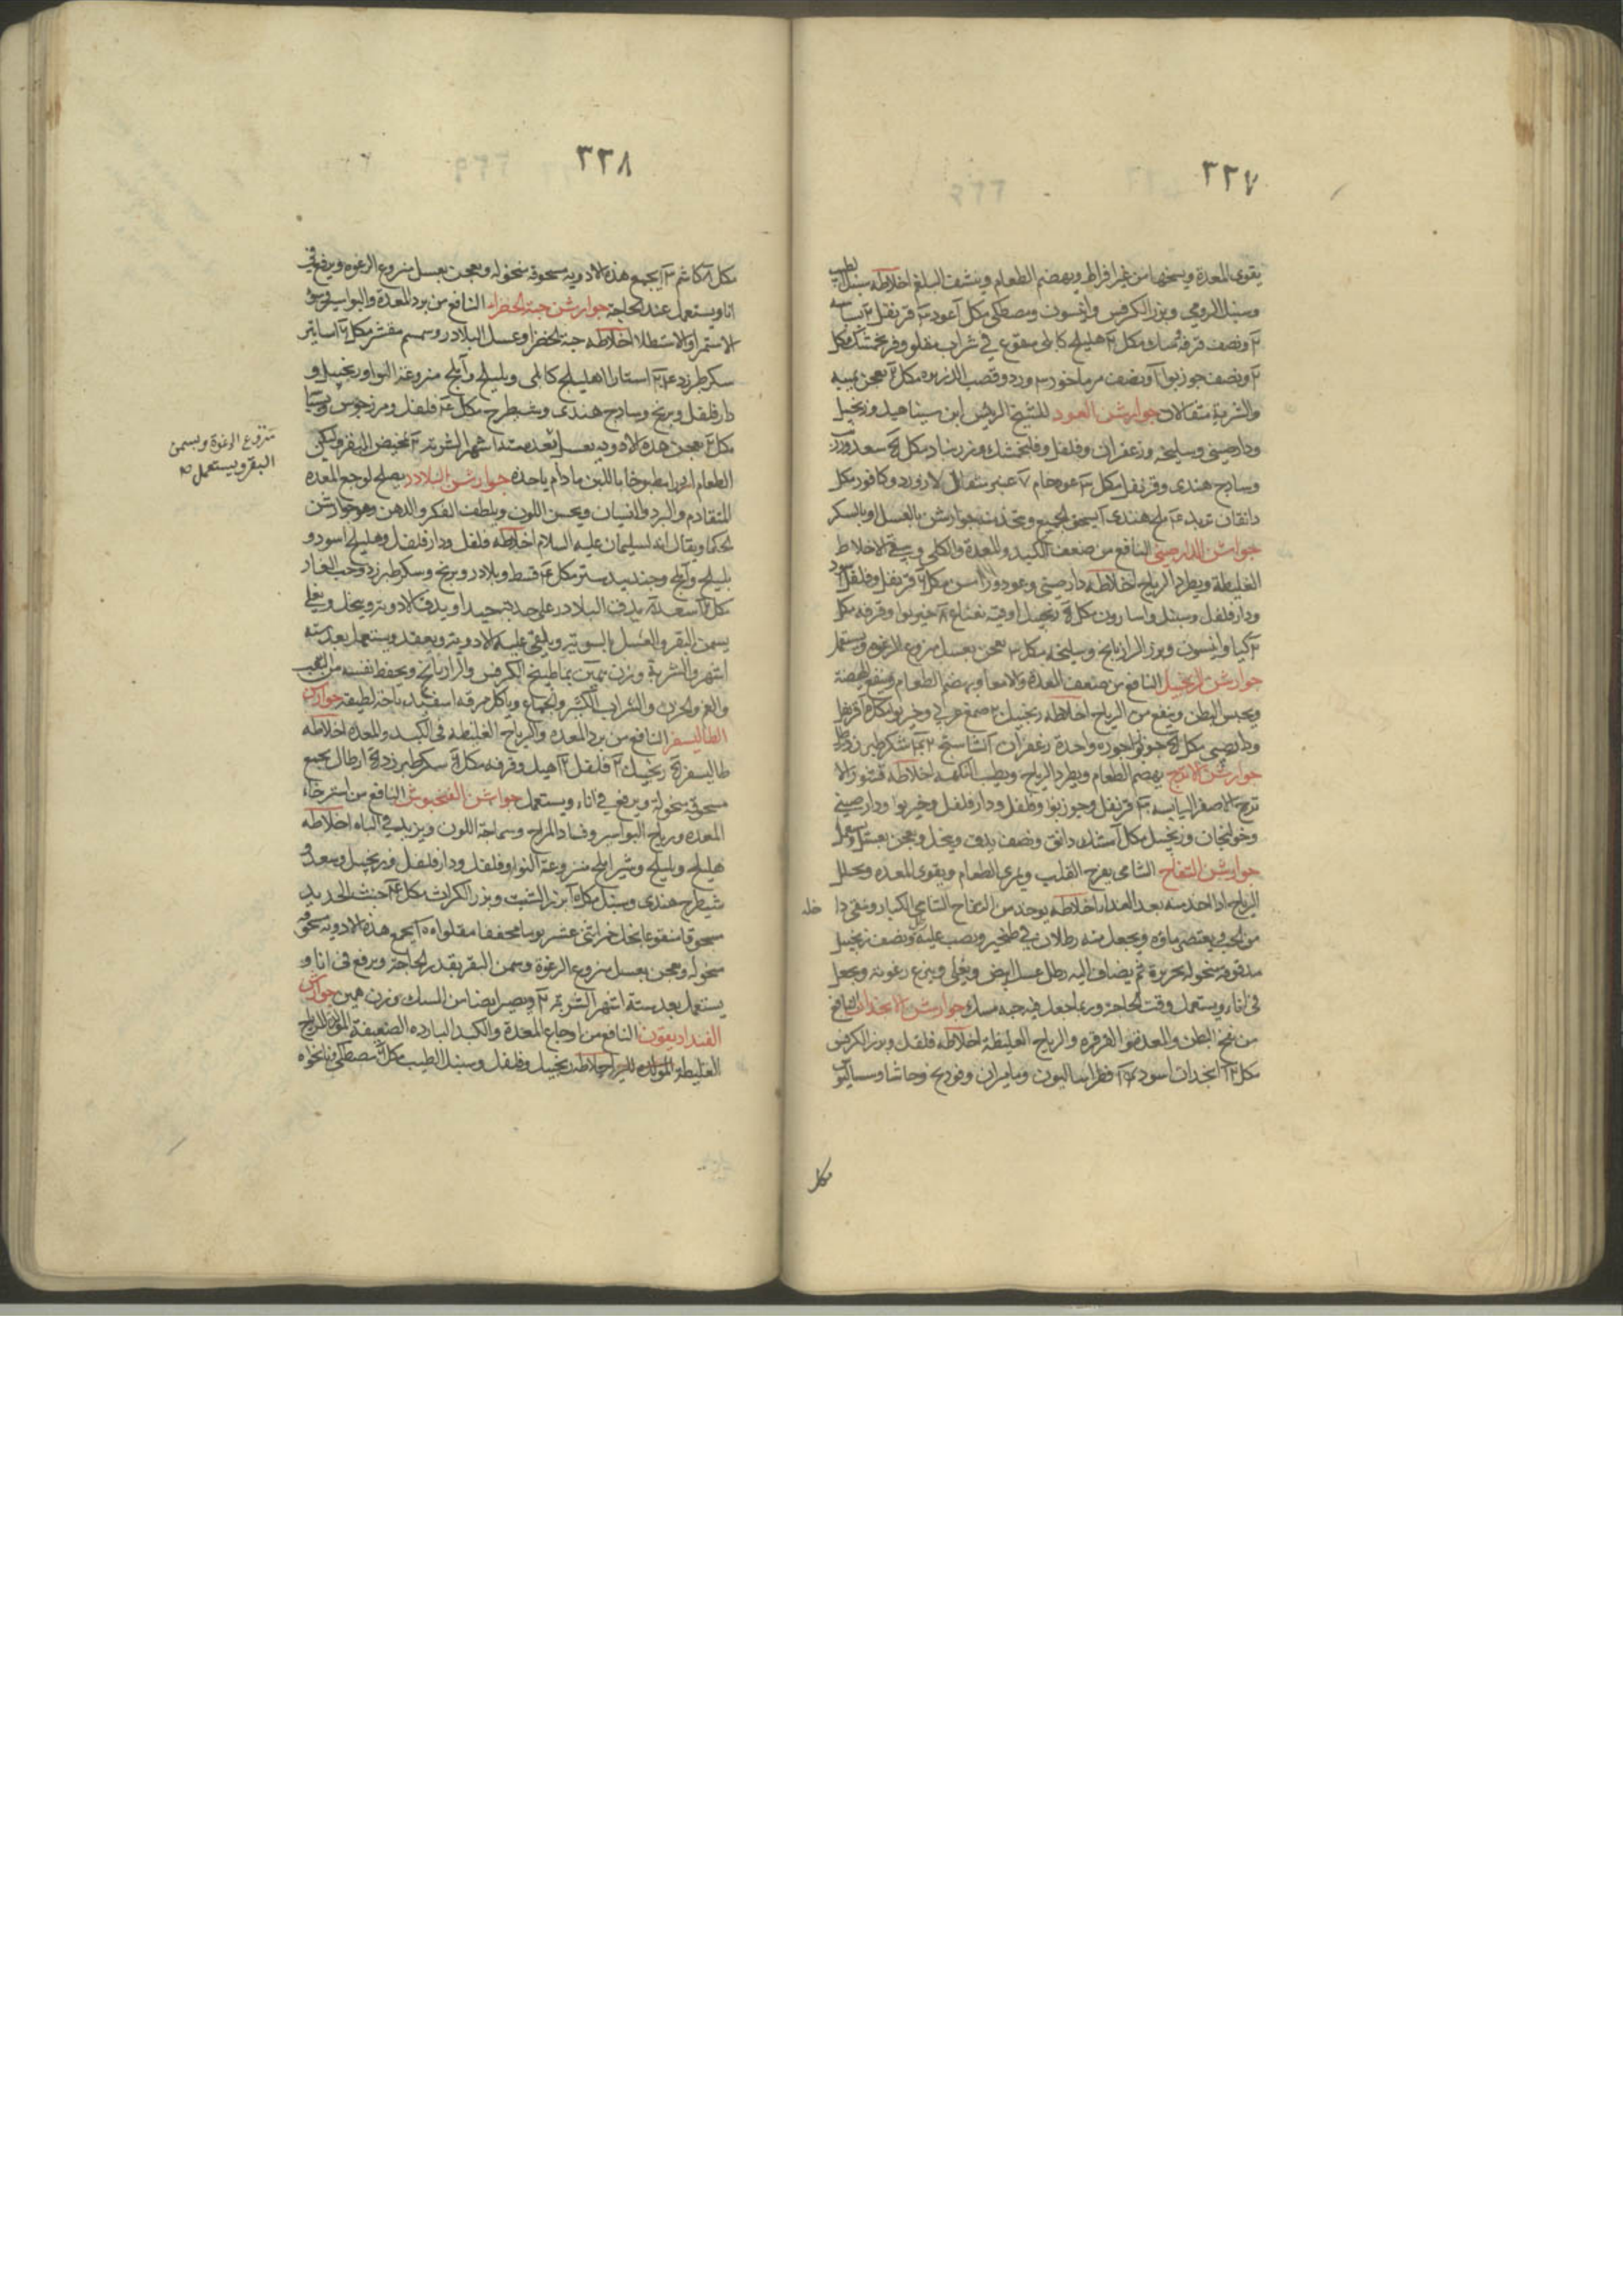 ٣٣٧
يقوى المعدة ويسخنها من غير افراط ويهضم الطعام وينشف البلغم اخلاطه سنبل الطيب
وسنبل الرومي وبزر الكرفس وانيسون ومصطكى مكل آعود ٣ قرنفل
ونصف قرفة مكل هليلج كابلى منقوع في شراب مقلو وفرنجمشك مكل
ونصف جوز بوا ونصف مرماخور ٣ ورد وقصب الذريره مكل يعجن بميبه
والشربة مثقالان جوارشن العود للشيخ الريس ابن سينا هيل وزنجبيل
ودارصيني وسليخه وزعفران وفلفل وفلنجمشك وزرنباد مكل سعد
وسادج هندى وقرنفل مكل ٣ عود خام ٧ عنبر مثقال لازورد وكافور مكل
دانقان تربد ٤ ملح هندى يسحق الجميع ويتخذ منه جوارشن بالعسل او بالسكر
جوارشن الدارصينى النافع من ضعف الكبد والمعدة والكلى وينقى الاخلاط
الغليظة ويطرد الرياح اخلاطه دارصينى وعود وراسن مكل قرنفل وفلفل اسود
ودارفلفل وسنبل واسارون مكل زنجبيل اوقيه نعناع ٨ خيربوا وقرفه مكل
كيا وانيسون وبزر الرازيانج وسليخه مكل ٣ يعجن بعسل منزوع الرغوه ويستعمل
جوارشن الزنجبيل النافع من ضعف المعدة والامعا ويهضم الطعام وينفع الهيضة
ويحبس البطن وينفع من الرياح اخلاطه زنجبيل ٢ صمغ عربي وخيربوا مكل قرنفل
ودارصينى مكل جوزبوا جوزه واحدة زعفران نشاستج سكر طبرزد رطل
جوارشن الاترج يهضم الطعام ويطرد الرياح ويطيب النكهه اخلاطه قشور الا
ترج الاصفر اليابسه ٣ قرنفل وجوزبوا وفلفل ودارفلفل وخيربوا ودارصينى
وخولنجان وزنجبيل مكل مسك دانق ونصف يدق وينخل ويعجن بعسل ويستعمل
جوارشن التفاح الشامى يفرح القلب ويمرى الطعام ويقوى المعده ويحلل
الرياح اذا اخذ منه بعد الغداء اخلاطه يوخذ من التفاح الشامى الكبار وينقى دا خله
من الحب ويعتصر ماؤه ويجعل منه رطلان في طنجير ويصب عليه ونصف زنجبيل
مدقوقه منخوله بحريرة ثم يضاف اليه رطل عسل ابيض ويغلى وينزع رغوته ويجعل
في اناء ويستعمل وقت الحاجة وربما جعل فيه حبه مسك جوارشن الانجذان النافع
من نفخ البطن والمعدة والقرقره والرياح الغليظة اخلاطه فلفل وبزر الكرفس
مكل انجذان اسود فطراساليون وماميران وفودنج وحاشا وسساليوس
مكل
٣٣٨
مكل ٨ كاشم يجمع هذه الادويه مسحوقه منخوله ويعجن بعسل منزوع الرغوه ويرفع في
انا ويستعمل عند الحاجة جوارشن حبة الخضراء النافع من برد المعدة والبواسير وسوء
الاستمراء والاستطلا اخلاطه حبة الخضرا وعسل البلادر وسمسم مقشر مكل اساتير
سكر طبرزد استارا اهليلج كابلى وبليلج وآملج منزوعة النوا وزنجبيل و
دارفلفل وبرنج وسادج هندى وشيطرج مكل فلفل ومرزجوش
مكل يعجن هذه الادويه بعسل بعد ستة اشهر الشربة بمخيض البقر وليكن
الطعام ارزا مطبوخا باللبن مادام ياخذه جوارشن البلادر يصلح لوجع المعده
المتقادم والبرد والنسيان ويحسن اللون ويلطف الفكر والذهن وهو جوارشن
الحكما ويقال انه لسليمان عليه السلام اخلاطه فلفل ودارفلفل وهليلج اسود و
بليلج وآملج وجندبيدستر مكل قسط وبلادر وبرنج وسكر طبرزد وحب الغار
مكل سعد يدق البلادر على حدته جيدا ويدق الادويه وينخل ويغلى
بسمن البقر والعسل بالسويه ويلقى عليه الادويه ويعقد ويستعمل بعد سته
اشهر والشربة وزن درهمين بماء طبيخ الكرفس والرازيانج ويحفظ نفسه من التعب
والغم والحزن والشراب الكثير والجماع وياكل مرقه اسفيدباجة لطيفة جوارشن
الطاليسفر النافع من برد المعده والرياح الغليظه في الكبد والمعدة اخلاطه
طاليسفر زنجبيل فلفل هيل وقرفه مكل سكر طبرزد ارطال يجمع
مسحوقة منخوله ويرفع في اناء ويستعمل جوارشن الفنجنوش النافع من استرخاء
المعده ورياح البواسير وفساد المزاج وسماجة اللون ويزيد في الباه اخلاطه
هليلج وبليلج وشير املج منزوعة النوا وفلفل ودارفلفل وزنجبيل وسعد و
شيطرج هندى وسنبل مكل بزر الشبت وبزر الكراث مكل خبث الحديد
مسحوقا منقوعا بخل خمر اثنى عشر يوما مجففا مقلوا يجمع هذه الادويه مسحوقه
منخوله وتعجن بعسل منزوع الرغوة وسمن البقر بقدر الحاجة ويرفع في انا و
يستعمل بعد ستة اشهر الشربة ويصير ايضا من المسك وزن درهمين جوارشن
الفنداديقون النافع من اوجاع المعدة والكبد البارده الضعيفة المولدة للرياح
الغليظه اخلاطه زنجبيل وفلفل وسنبل الطيب مكل مصطكى ونانخواه
منزوع الرغوة وبسمن
البقر ويستعمل صح